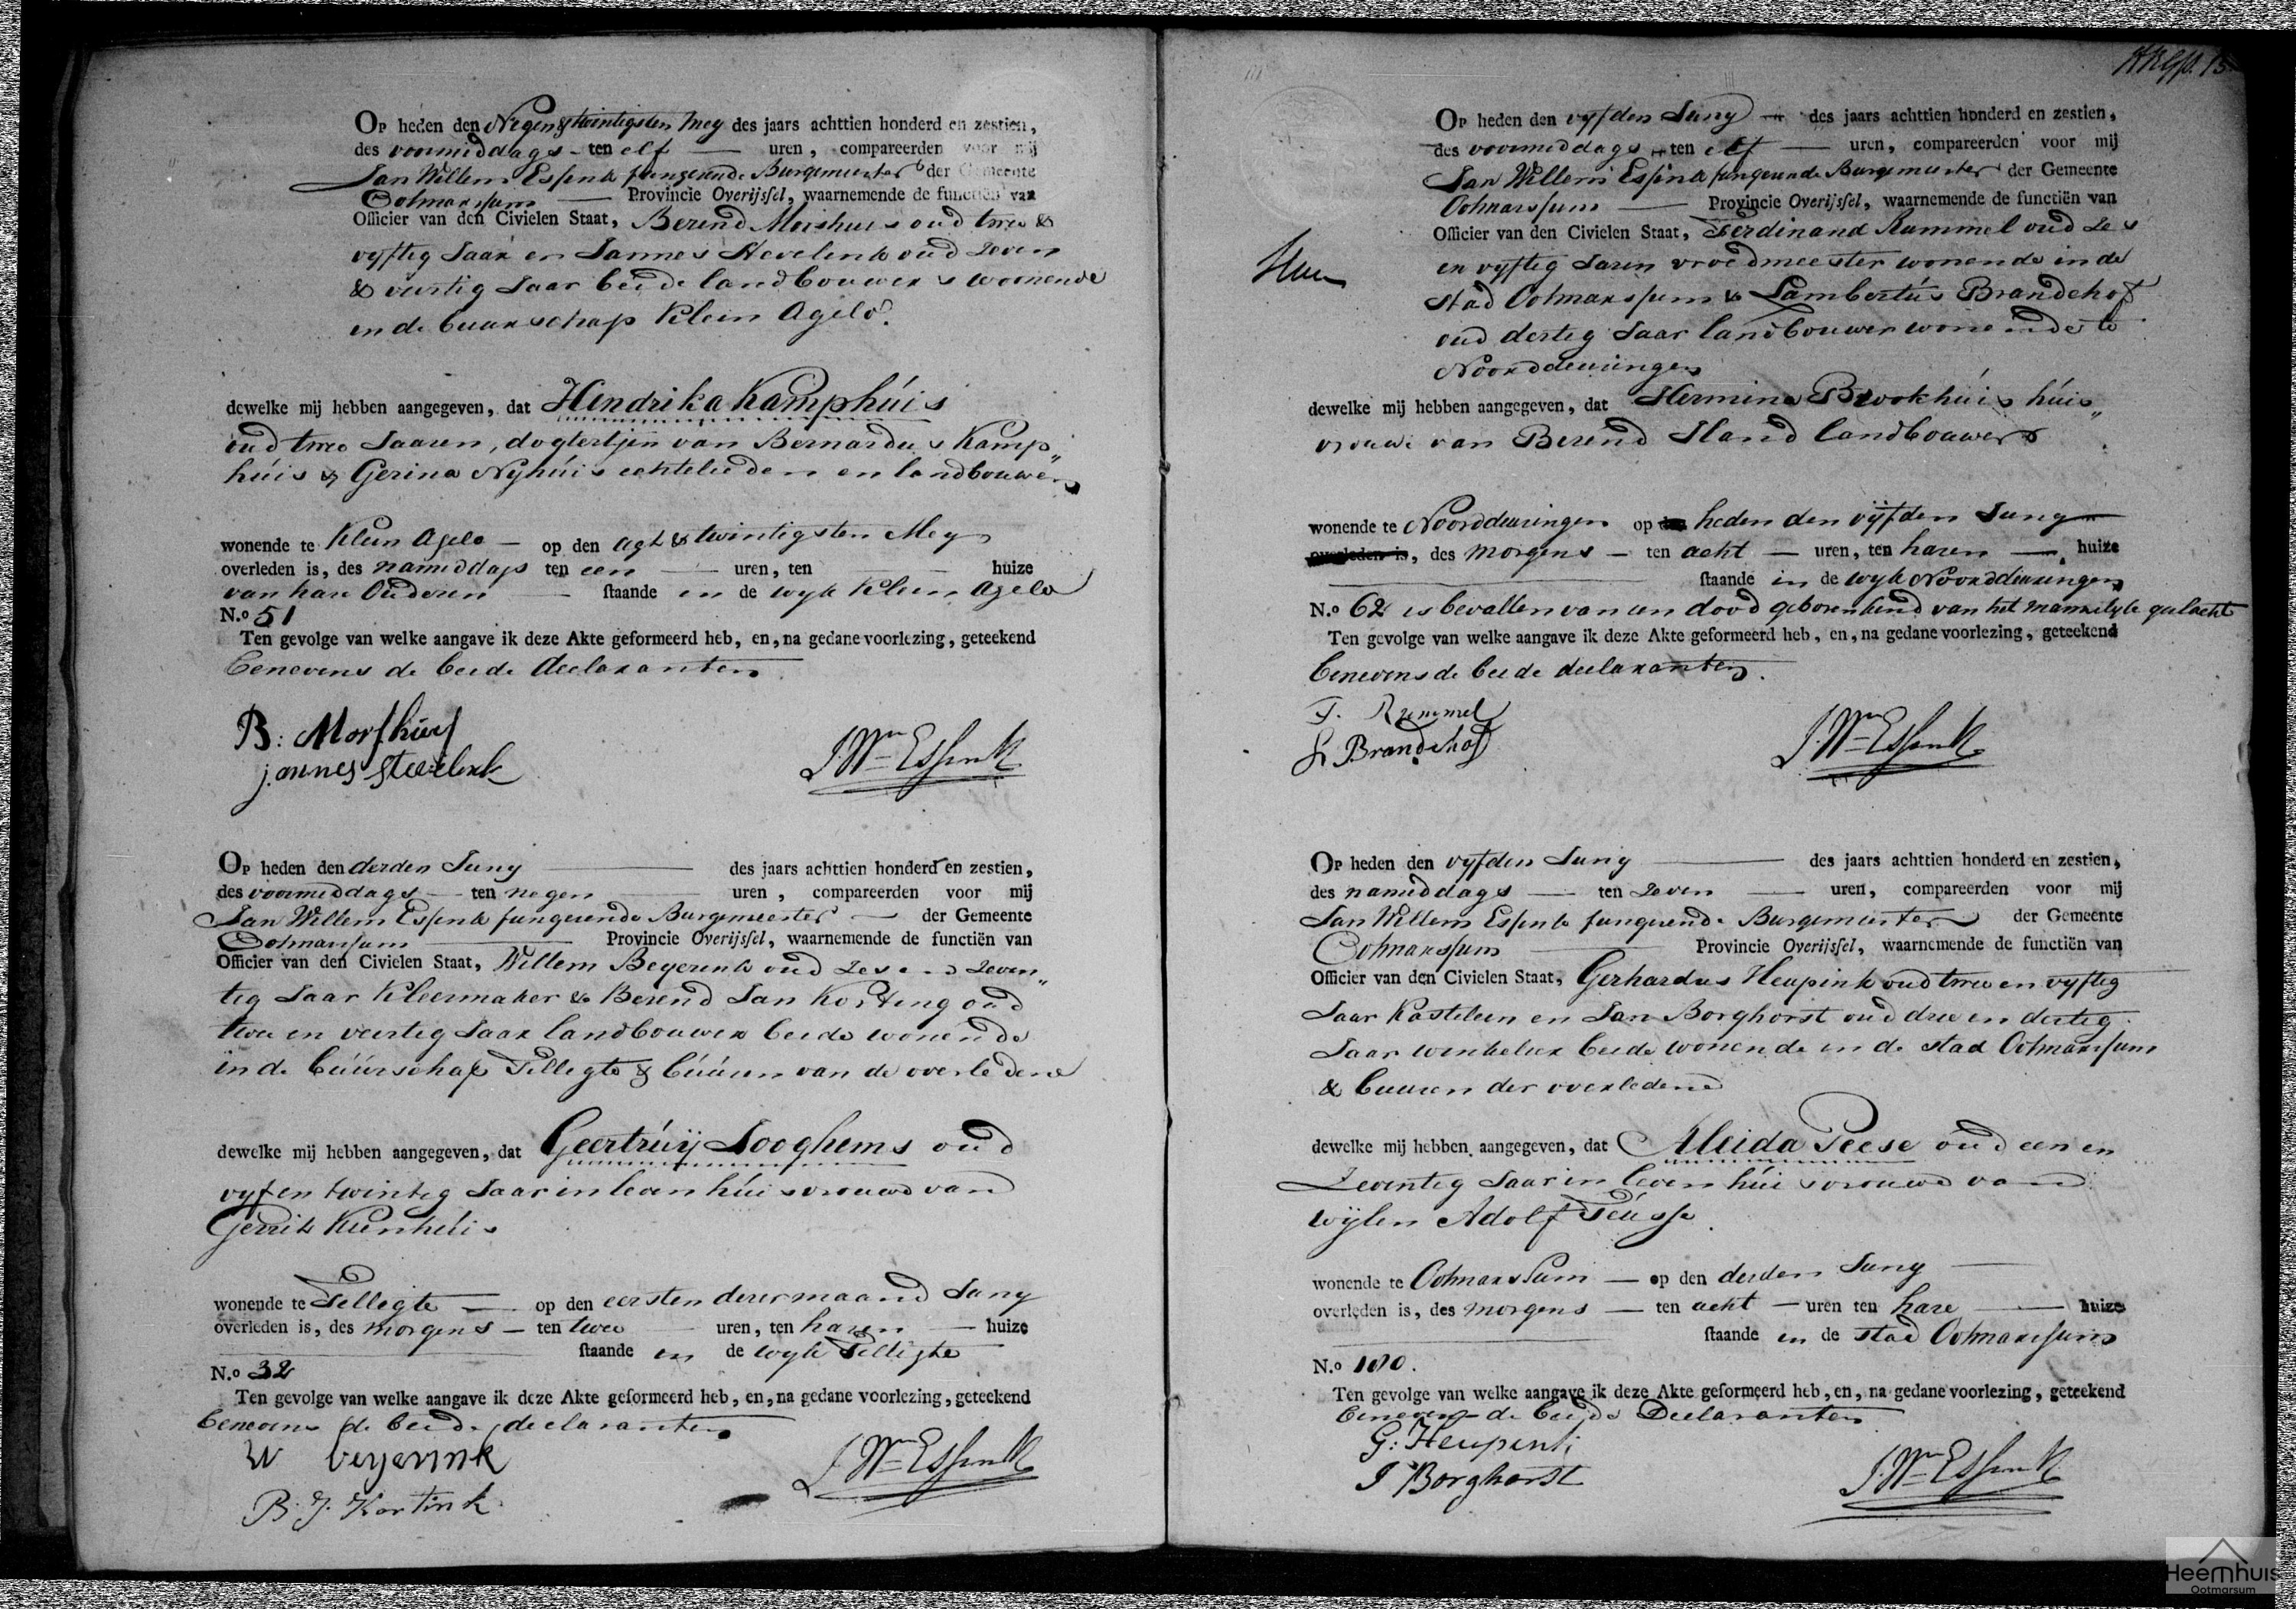 Op heden den Negen & twintigsten Mey des jaars achttien honderd en zestien,
des voormiddags ten elf uren, compareerden voor mij
Jan Willem Essink fungerende Burgemeester der Gemeente
Ootmarssum Provincie Overijssel, waarnemende de functiën van
Officier van den Civielen Staat, Berend Morshuis oud twee &
vyftig Jaar en Jannes Stevelink oud zeven
& veertig Jaar beide landbouwers woonende
in de buurschap Klein Agelo.
dewelke mij hebben aangegeven, dat Hendrika Kamphúis
oud twee Jaaren, dogtertjen van Bernardus Kamp„
húis & Gerina Nyhúis echtelieden en landbouwers
wonende te Klein Agelo op den agt & twintigsten Mey
overleden is, des namiddags ten een uren, ten huize
van hare Ouderen staande in de wyk Klein Agelo
N.o 51
Ten gevolge van welke aangave ik deze Akte geformeerd heb, en, na gedane voorlezing, geteekend
benevens de beide declaranten
B: Morshuis
jannes stevelink
J Wm Essink
Op heden den derden Juny des jaars achttien honderd en zestien,
des voormiddags ten negen uren, compareerden voor mij
Jan Willem Essink fungerende Burgemeester der Gemeente
Ootmarssum Provincie Overijssel, waarnemende de functiën van
Officier van den Civielen Staat, Willem Beyerink oud zes en zeven„
tig Jaar Kleermaker & Berend Jan Korting oud
twee en veertig Jaar landbouwer beide wonende
in de búúrschap Tilligte & búúren van de overledene
dewelke mij hebben aangegeven, dat Geertrúij Looghems oud
vyf en twintig Jaar in leven húisvrouwe van
Gerrit
wonende te Tilligte op den eersten dezer maand Juny
overleden is, des morgens ten twee uren, ten haren huize
staande in de wyk Tilligte
N.o 32
Ten gevolge van welke aangave ik deze Akte geformeerd heb, en, na gedane voorlezing, geteekend
benevens de beide declaranten
W beyerink
B. J. Kortink
J Wm Essink
Op heden den vyfden Juny des jaars achttien honderd en zestien,
des voormiddags ten elf uren, compareerden voor mij
Jan Willem Essink fungerende Burgemeester der Gemeente
Ootmarssum Provincie Overijssel, waarnemende de functiën van
Officier van den Civielen Staat, Ferdinand Rummel oud zes
en vyftig Jaren vroedmeester wonende in de
stad Ootmarssum & Lambertús Brandehof
oud dertig Jaar landbouwer wonende te
Noorddeuringen
dewelke mij hebben aangegeven, dat Hermina Brookhúis húis„
vrouwe van Berend Hand landbouwers
wonende te Noorddeuringen op den heden den vyfden Juny
overleden is, des morgens ten acht uren, ten haren huize
staande in de wyk Noorddeuringen
N.o 62 is bevallen van een dood geboren kind van het mannelyk geslacht
Ten gevolge van welke aangave ik deze Akte geformeerd heb, en, na gedane voorlezing, geteekend
benevens de beide declaranten.
F. Rummel
L Brandehof
J. Wm Essink
Op heden den vyfden Juny des jaars achttien honderd en zestien,
des namiddags ten zeven uren, compareerden voor mij
Jan Willem Essink fungerende Burgemeester der Gemeente
Ootmarssum Provincie Overijssel, waarnemende de functiën van
Officier van den Civielen Staat, Gerhardus Heupink oud twee en vyftig
Jaar Kastelein en Jan Borghorst oud drie en dertig
Jaar winkelier beide wonende in de stad Ootmarssum
& buuren der overledene
dewelke mij hebben aangegeven, dat Aleida Peese oud een en
Zeventig Jaar in leven húisvrouwe van
wijlen Adolf Teusse.
wonende te Ootmarssum op den derden Juny
overleden is, des morgens ten acht uren ten hare huize
staande in de stad Ootmarssum
N.o 100.
Ten gevolge van welke aangave ik deze Akte geformeerd heb, en, na gedane voorlezing, geteekend
benevens de beide Declaranten
G: Heupink
J Borghorst
J. Wm Essink
Heemhuis
Ootmarsum